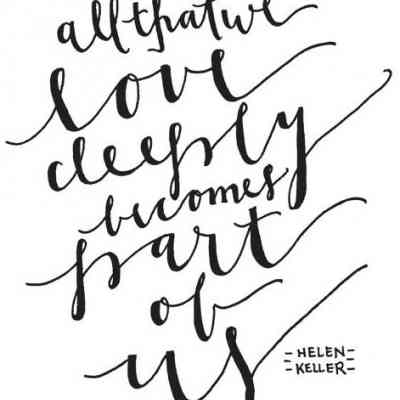 all that we
love
deeply
becomes
part
of
us
-HELEN-
-KELLER-